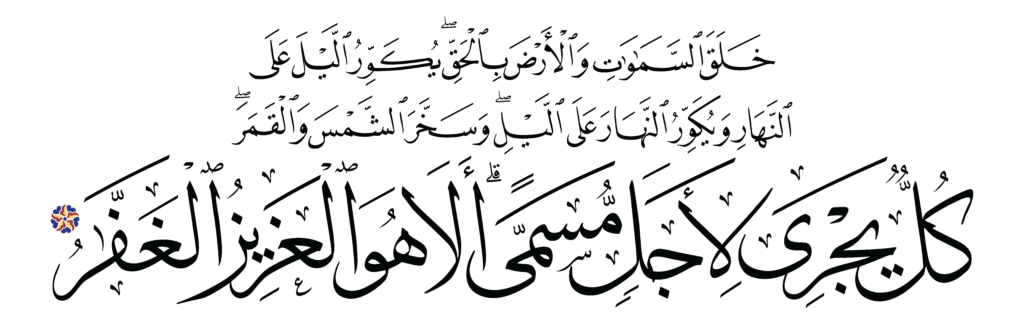 خَلَقَ ٱلسَّمَٰوَٰتِ وَٱلْأَرْضَ بِٱلْحَقِّۖ يُكَوِّرُ ٱلَّيْلَ عَلَى
ٱلنَّهَارِ وَيُكَوِّرُ ٱلنَّهَارَ عَلَى ٱلَّيْلِۖ وَسَخَّرَ ٱلشَّمْسَ وَٱلْقَمَرَۖ
كُلٌّ يَجْرِى لِأَجَلٍ مُّسَمًّىۗ أَلَا هُوَ ٱلْعَزِيزُ ٱلْغَفَّٰرُ